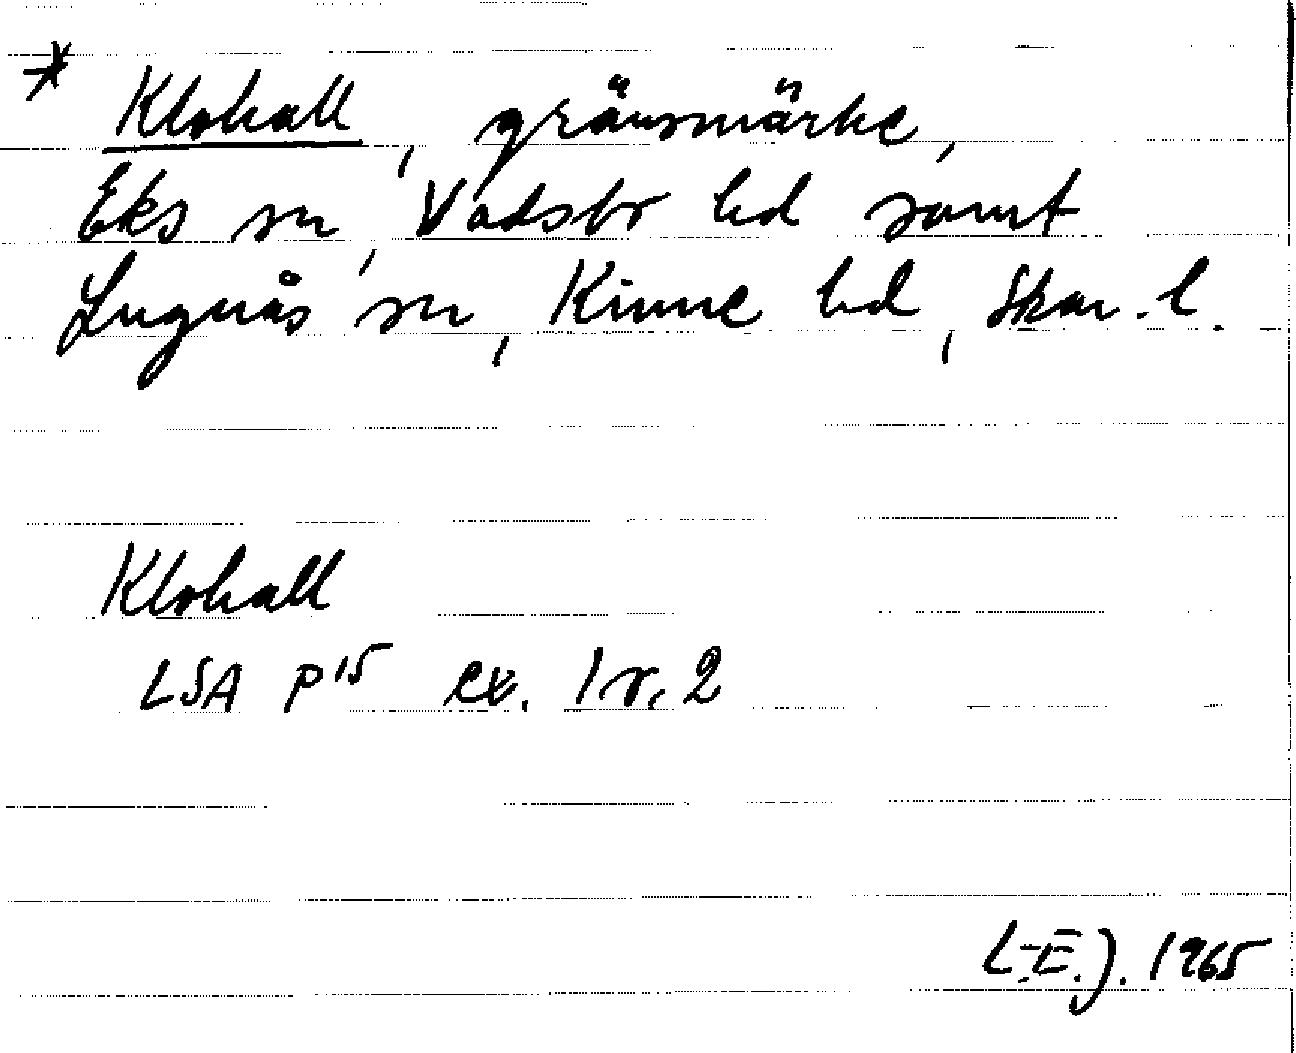 * Klohall, gränsmärke,
Eks sn, Vadsbo hd samt
Lugnås sn, Kinne hd, Skar. l.
Klohall
LSA P15 ex. 1 v. 2
L-E.J. 1965